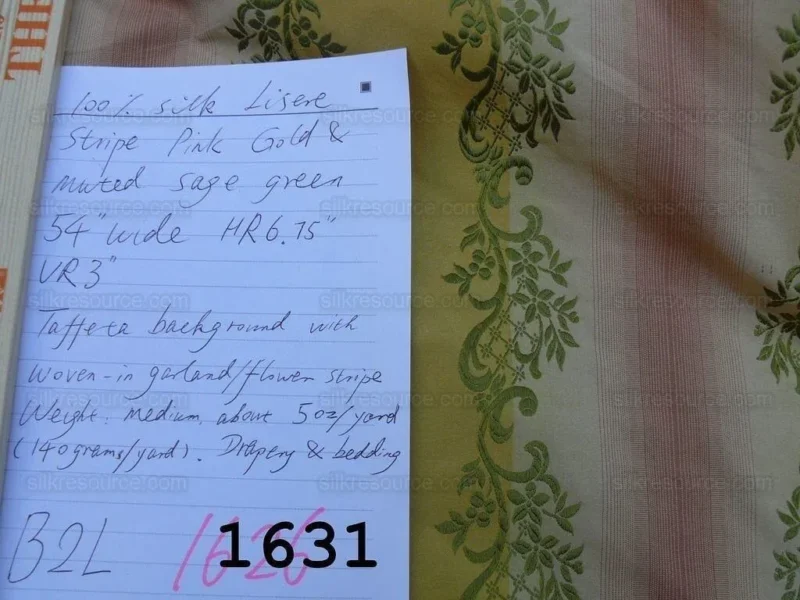 THE
100% silk Lisere
Stripe Pink Gold &
muted sage green
54" wide HR6.75"
VR3"
Taffeta background with
woven-in garland/flower stripe
Weight: medium, about 5oz/yard
(140grams/yard). Drapery & bedding
B2L
1626
1631
silkresource.com